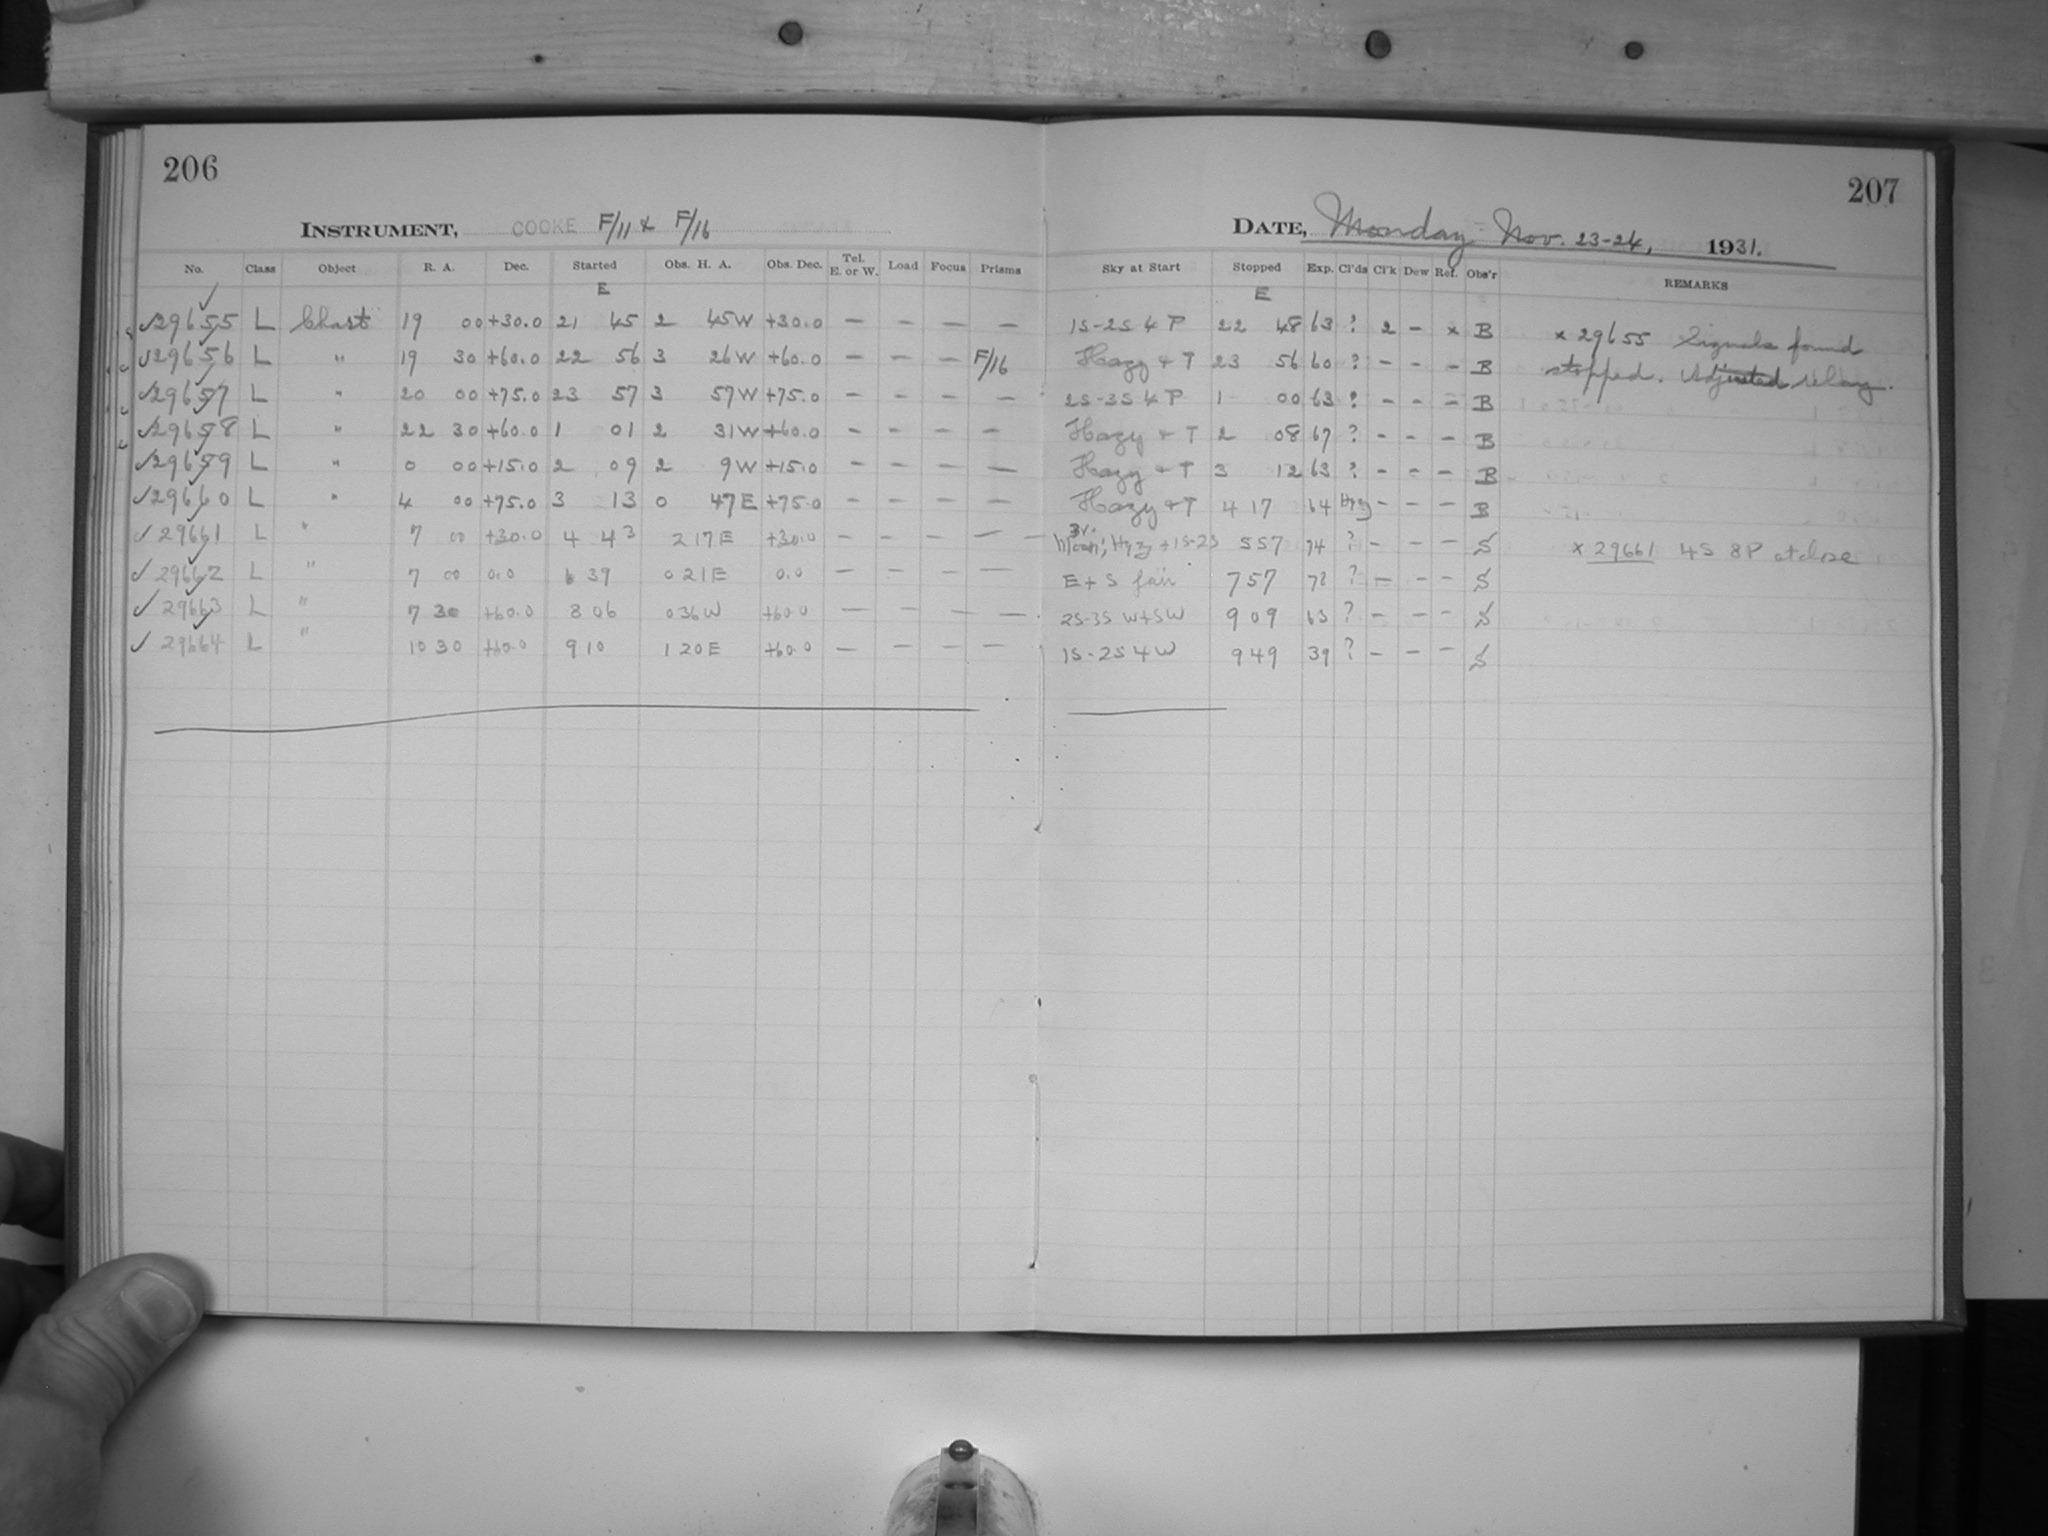 206
207
INSTRUMENT, COOKE F/11 & F/16
DATE, Monday Nov. 23-24, 1931.
No. Class Object R. A. Dec. Started Obs. H. A. Obs. Dec. Tel. E. or W. Load Focus Prisms Sky at Start Stopped Exp. Cl'ds Cl'k Dew Ref. Obs'r REMARKS
E E
✓29655 L Chart 19 00 +30.0 21 45 2 45W +30.0 — — — — 1S-2S 4 P 22 48 63 ? 2 – x B x 29655 Signals found
✓29656 L " 19 30 +60.0 22 56 3 26W +60.0 — — — F/16 Hazy + T 23 56 60 ? – – – B stopped. Adjusted relay.
✓29657 L " 20 00 +75.0 23 57 3 57W +75.0 — — — — 2S-3S 4 P 1 00 63 ? – – – B
✓29658 L " 22 30 +60.0 1 01 2 31W +60.0 — — — — Hazy + T 2 08 67 ? – – – B
✓29659 L " 0 00 +15.0 2 09 2 9W +15.0 — — — — Hazy + T 3 12 63 ? – – – B
✓29660 L " 4 00 +75.0 3 13 0 47E +75.0 — — — — Hazy + T 4 17 64 Hzy – – – B
✓29661 L " 7 00 +30.0 4 43 2 17E +30.0 — — — — Moon, Hzy + 1S-2S 5 57 74 ? – – – S x 29661 4S 8P at close
✓29662 L " 7 00 0.0 6 39 0 21E 0.0 — — — — E + S fair 7 57 78 ? – – – S
✓29663 L " 7 30 +60.0 8 06 0 36W +60.0 — — — — 2S-3S W+SW 9 09 63 ? – – – S
✓29664 L 10 30 +60.0 9 10 1 20E +60.0 — — — — 1S-2S 4 W 9 49 39 ? – – – S